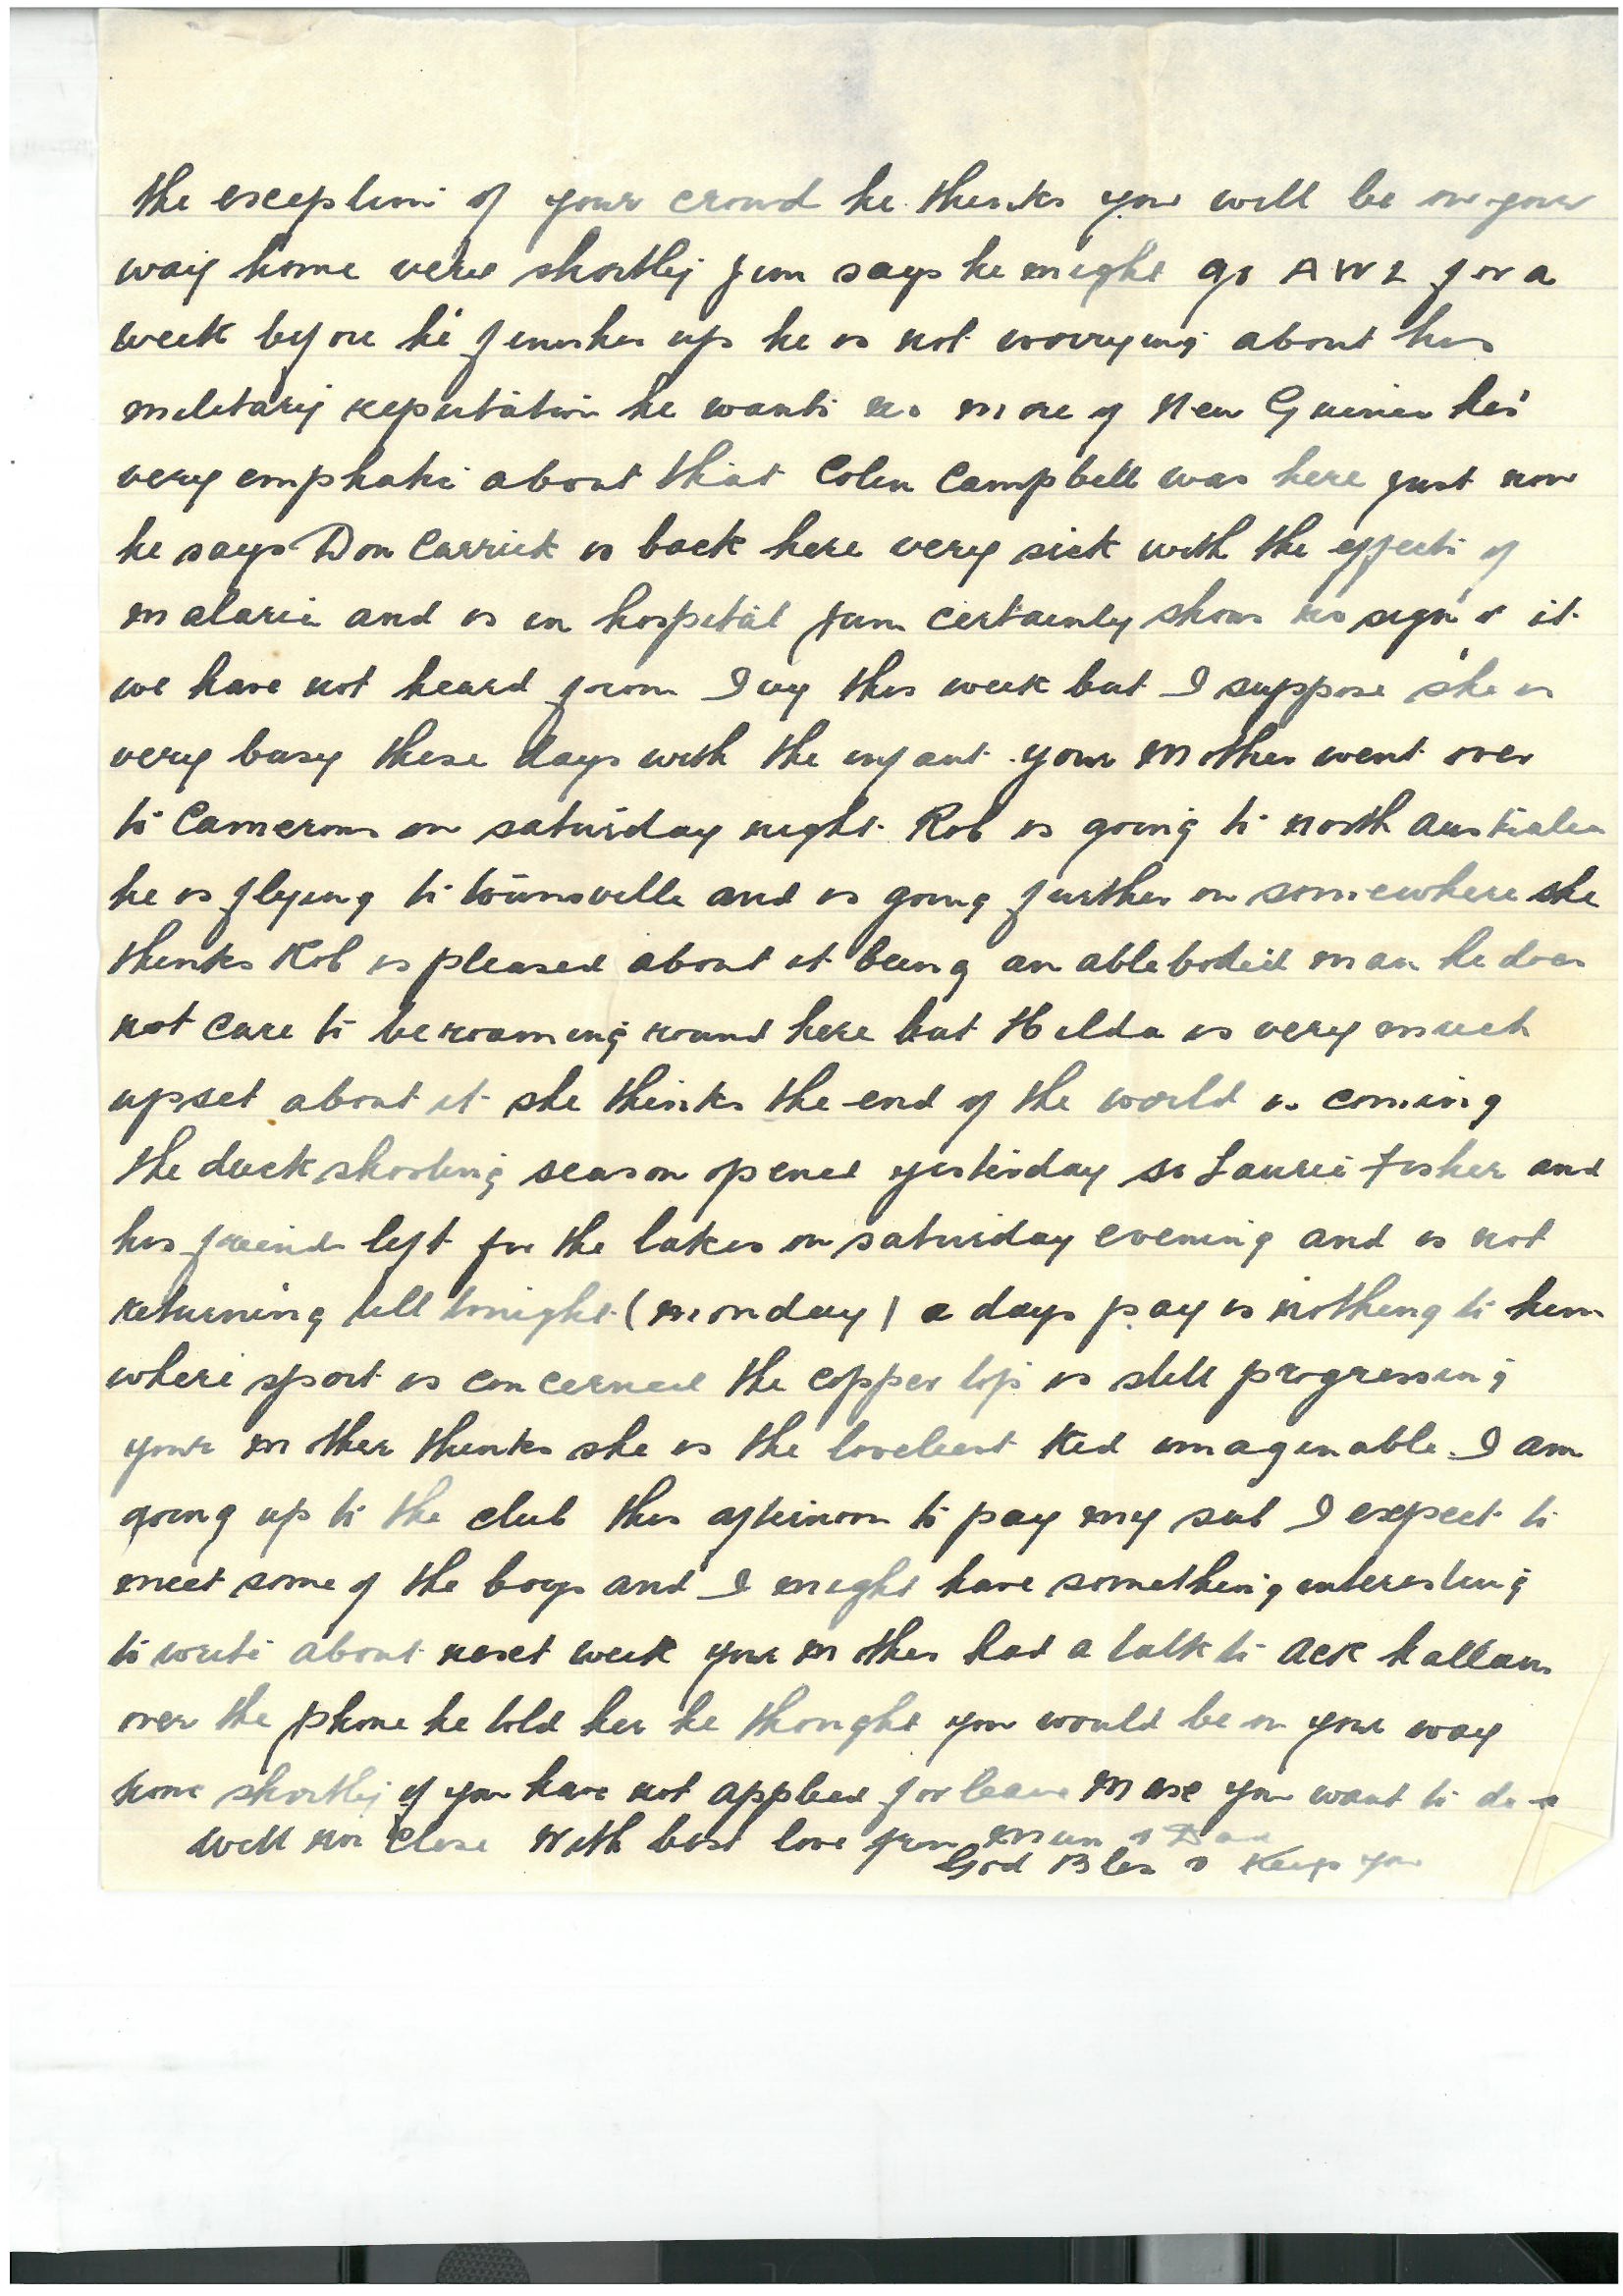 the exception of your crowd he thinks you will be on your
way home very shortly Jim says he might go AWL for a
week before he finishes up he is not worrying about his
military reputation he wants no more of New Guinea he's
very emphatic about that Colin Campbell was here just now
he says Don Carrick is back here very sick with the effects of
malaria and is in hospital Jim certainly shows no sign of it
we have not heard from Ivy this week but I suppose she is
very busy these days with the infant your Mother went over
to Camerons on saturday night Rob is going to north australia
he is flying to townsville and is going further on somewhere she
thinks Rob is pleased about it being an ablebodied man he does
not care to be roaming round here but Hilda is very much
upset about it she thinks the end of the world is coming
the duck shooting season opened yesterday so Laurie Fisher and
his friends left for the lakes on saturday evening and is not
returning till tonight (monday) a days pay is nothing to him
where sport is concerned the copper top is still progressing
your mother thinks she is the loveliest kid imaginable I am
going up to the club this afternoon to pay my sub I expect to
meet some of the boys and I might have something interesting
to write about next week your mother had a talk to ack hallam
over the phone he told her he thought you would be on your way
home shortly if you have not applied for leave you want to do so
will now close With best love from Mum & Dad
God Bless & Keep you